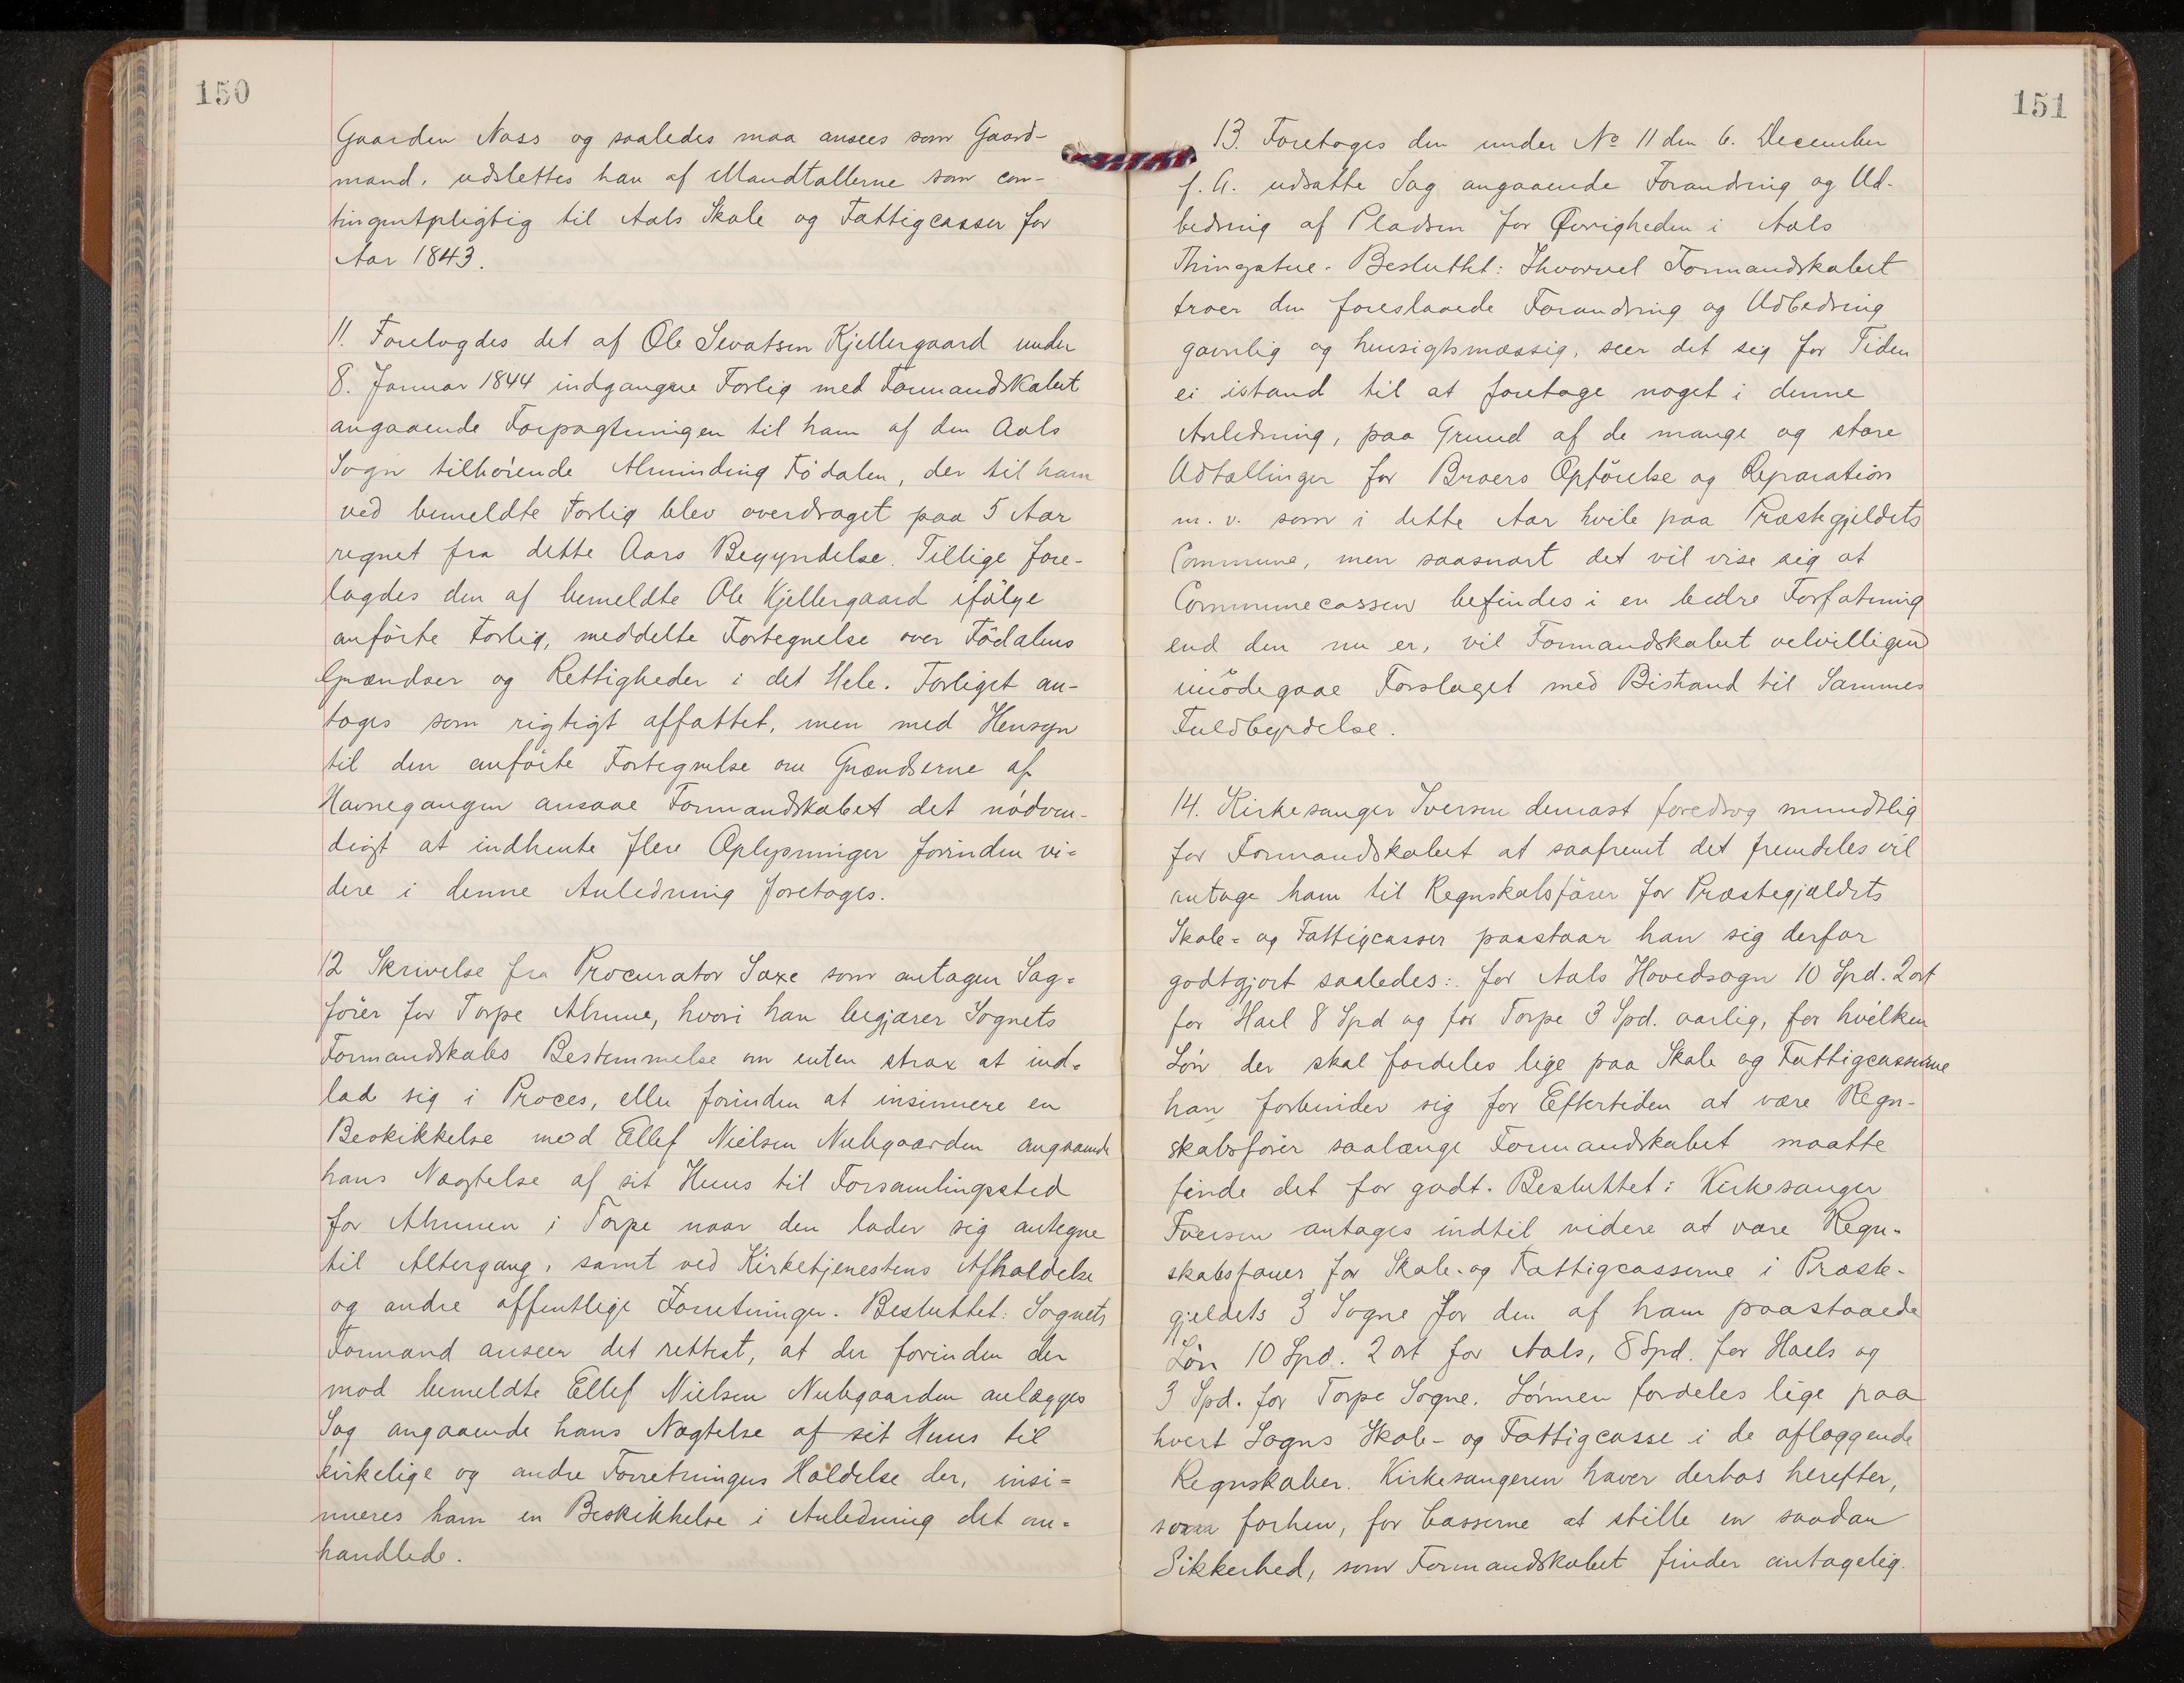 150
Gaarden Næss og saaledes maa ansees som Gaard-
mand, udslettes han af Mandtallerne som con-
tingentpligtig til Aals Skole og Fattigcasser for
Aar 1843.
11. Forelagdes det af Ole Sevatsen Kjellergaard under
8. Januar 1844 indgangne Forlig med Formandskabet
angaaende Forpagtningen til ham af den Aals
Sogn tilhörende Alminding Födalen, der til ham
ved bemeldte Forlig blev overdraget paa 5 Aar
regnet fra dette Aars Begyndelse. Tillige fore-
lagdes den af bemeldte Ole Kjellergaard ifölge
anförte Forlig, meddelte Fortegnelse over Födalens
Grændser og Rettigheder i det Hele. Forliget an-
toges som rigtigt affattet, men med Hensyn
til den anförte Fortegnelse om Grændserne af
Havnegangen ansaae Formandskabet det nödven-
digt at indhente flere Oplysninger forinden vi-
dere i denne Anledning foretoges.
12 Skrivelse fra Procurator Saxe som antagen Sag-
förer for Torpe Almue, hvori han begjærer Sognets
Formandskabs Bestemmelse om enten strax at ind-
lade sig i Proces, eller forinden at insinuere en
Beskikkelse mod Ellef Nielsen Nubgaarden angaaende
hans Nægtelse af sit Huus til Forsamlingssted
for Almuen i Torpe naar den lader sig antegne
til Altergang, samt ved Kirketjenestens Afholdelse
og andre offentlige Forretninger. Besluttet: Sognets
Formand anseer det rettest, at der forinden der
mod bemeldte Ellef Nielsen Nubgaarden anlægges
Sag angaaende hans Nægtelse af sit Huus til
kirkelige og andre Forretningers Holdelse der, insi-
nueres ham en Beskikkelse i Anledning det om-
handlede.
151
13. Foretoges den under No 11 den 6. December
f. A. udsatte Sag angaaende Forandring og Ud-
bedring af Pladsen for Øvrigheden i Aals
Thingstue. Besluttet: Ihvorvel Formandskabet
troer den foreslaaede Forandring og Udbedring
gavnlig og hensigtsmæssig, seer det sig for Tiden
ei istand til at foretage noget i denne
Anledning, paa Grund af de mange og store
Udtællinger for Broers Opförelse og Reparation
m. v. som i dette Aar hvile paa Præstegjeldets
Commune, men saasnart det vil vise sig at
Communecassen befindes i en bedre Forfatning
end den nu er, vil Formandskabet velvilligen
imödegaae Forslaget med Bistand til Sammes
Fuldbyrdelse.
14. Kirkesanger Iversen dernæst foredrog mundtlig
for Formandskabet at saafremt det fremdeles vil
antage ham til Regnskabsförer for Præstegjældets
Skole- og Fattigcasser paastaar han sig derfor
godtgjort saaledes: for Aals Hovedsogn 10 Spd. 2 ort
for Hael 8 Spd og for Torpe 3 Spd. aarlig, for hvilken
Lön der skal fordeles lige paa Skole og Fattigcasserne
han forbinder sig for Eftertiden at være Regn-
skabsförer saalænge Formandskabet maatte
finde det for godt. Besluttet: Kirkesanger
Iversen antages indtil videre at være Regn-
skabsförer for Skole- og Fattigcasserne i Præste-
gjeldets 3 Sogne for den af ham paastaaede
Lön 10 Spd. 2 ort for Aals, 8 Spd. for Haels og
3 Spd. for Torpe Sogne. Lönnen fordeles lige paa
hvert Sogns Skole- og Fattigcasse i de aflæggende
Regnskaber. Kirkesangeren haver derhos herefter,
som forhen, for Casserne at stille en saadan
Sikkerhed, som Formandskabet finder antagelig.